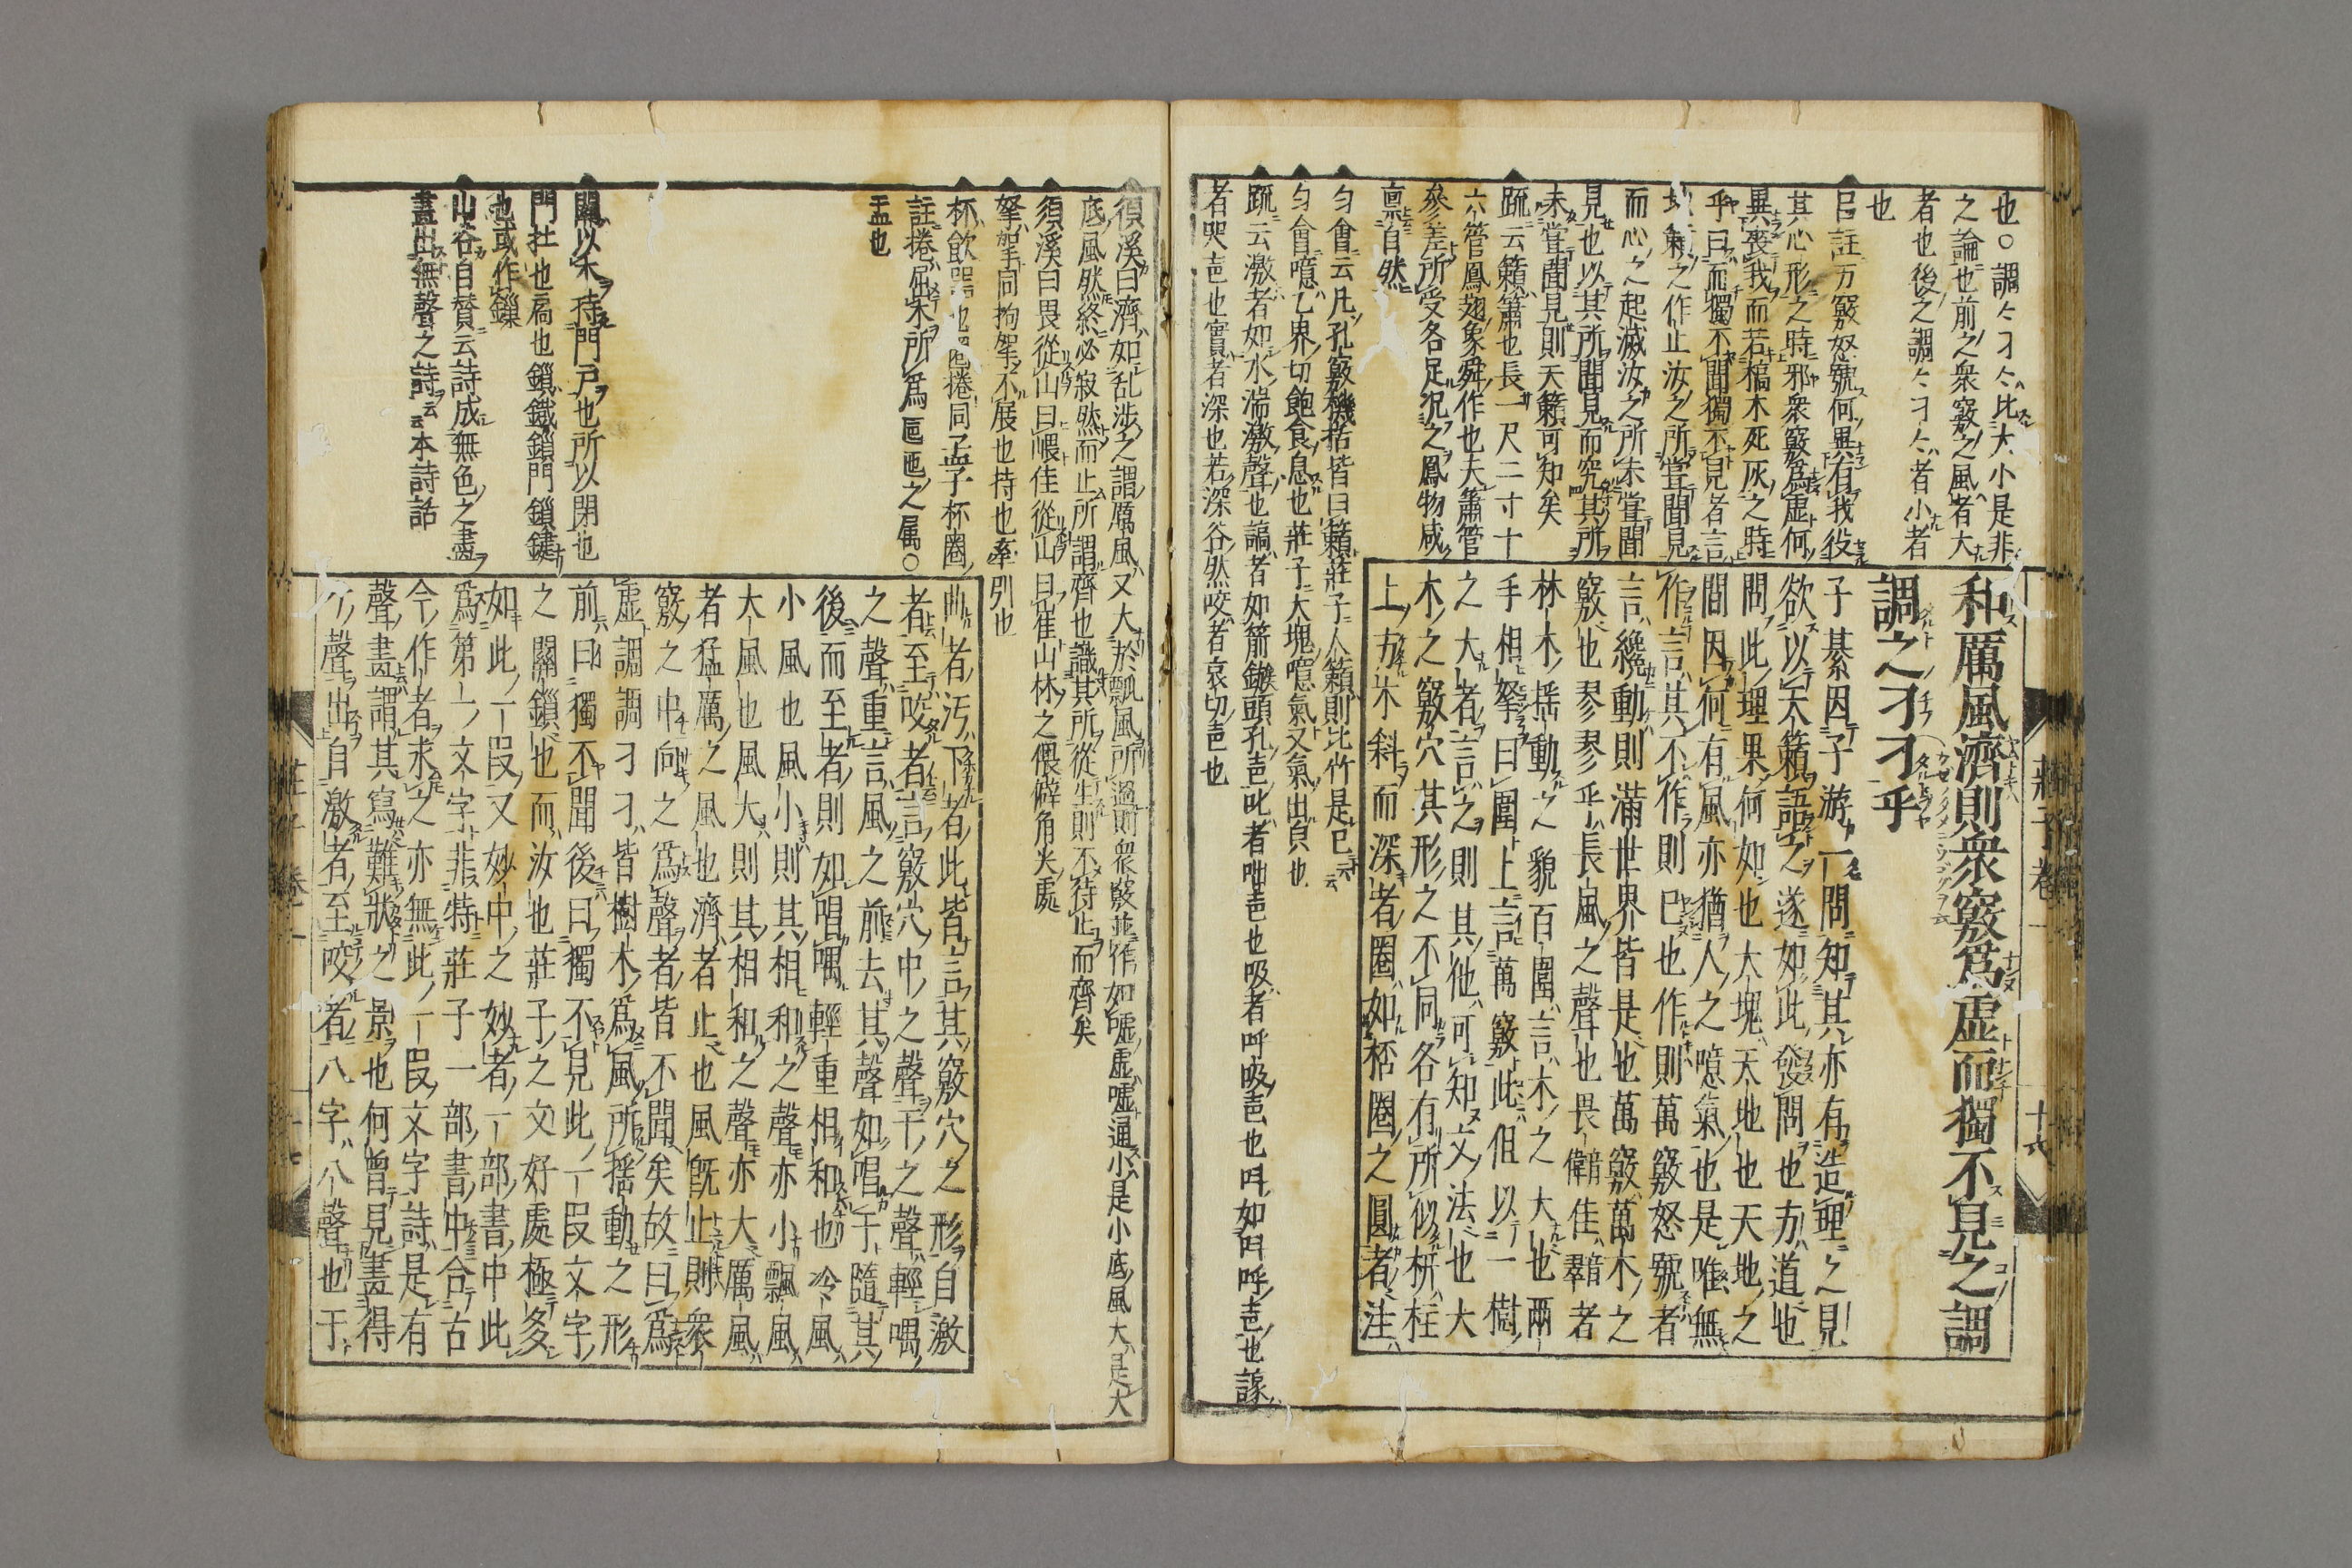 也○調々刁々比大小是非
之論也前之衆竅之風者大
者也後之調々刁々者小者
也
呂註万竅怒號何異有我役
其心形之時邪衆竅爲虚何
異喪我而若槁木死灰之時
乎曰而獨不聞獨不見者言
氣之作止汝之所甞聞見
而心之起滅汝之所未甞聞
見也以其所聞見而究其所
未甞聞見則天籟可知矣
疏云籟簫也長一尺二寸十
六管鳳翅象舜作也夫簫管
參差所受各足况之鳳物咸
禀自然
匀會云凡孔竅機括皆曰籟莊子人籟則比竹是已
匀會噫乙界切飽食息也莊子大塊噫氣又氣出皃也
疏云激者如水湍激聲也謞者如箭鏃頭孔声叱者咄声也吸者呼吸声也叫如叫呼声也譹
者哭声也宎者深也若深谷然咬者哀切声也
和厲風濟則衆竅爲虚而獨不見之調
調之刁刁乎
子綦因子游一問知其亦有造理々見
欲以天籟語之遂如此發問也方道也
問此理果何如也大塊天地也天地之
間因何有風亦猶人之噫氣也是唯無
作言其不作則已也作則萬竅怒號者
言纔動則滿世界皆是也萬竅萬木之
竅也翏翏乎長風之聲也畏佳者
林木搖動之貌百圍言木之大也兩
手相拏曰圍上言萬竅此但以一樹
之大者言之則其他可知文法也大
木之竅穴其形之不同各有所似枅柱
上方木斜而深者圈如桮圈之圓者洼
莊子卷一
十六
須溪曰濟如乱渉之謂厲風又大於飄風所過則衆竅並作如嘘虚嘘通小是小底風大是大
底風然終必寂然而止所謂齊也識其所從生則不待止而齊矣
須溪曰畏從山曰㟪佳從山曰崔山林之偎僻角尖處
拏挐同拘挐不展也持也牽引也
杯飲器也圈捲同孟子杯圈
註捲屈木所爲匜之属○
盂也
關以木持門戸也所以閉也
門扗也扃也鎖鐵鎖門鎖鍵
也或作鏁
山谷自賛云詩成無色之畵
畵出無聲之詩云云本詩話
曲者汚下者此皆言其竅穴之形自激
者至咬者言竅穴中之聲于之聲輕喁
之聲重言風之前去其聲如唱于隨其
後而至者則如唱喁輕重相和也冷風
小風也風小則其相和之聲亦小飄風
大風也風大則其相和之聲亦大厲風
者猛厲之風也濟者止也風旣止則衆
竅之中向之爲聲者皆不聞矣故曰爲
虚調調刁刁皆樹木爲風所搖動之形
前曰獨不聞後曰獨不見此一段文字
之關鎖也而汝也莊子之文好處極多
如此一段又妙中之妙者一部書中此
爲第一文字非特莊子一部書中合古
今作者求之亦無此一段文字詩是有
聲畵謂其寫難狀之景也何曾見畵得
个聲出自激者至咬者八字八聲也于
莊子卷一
十七